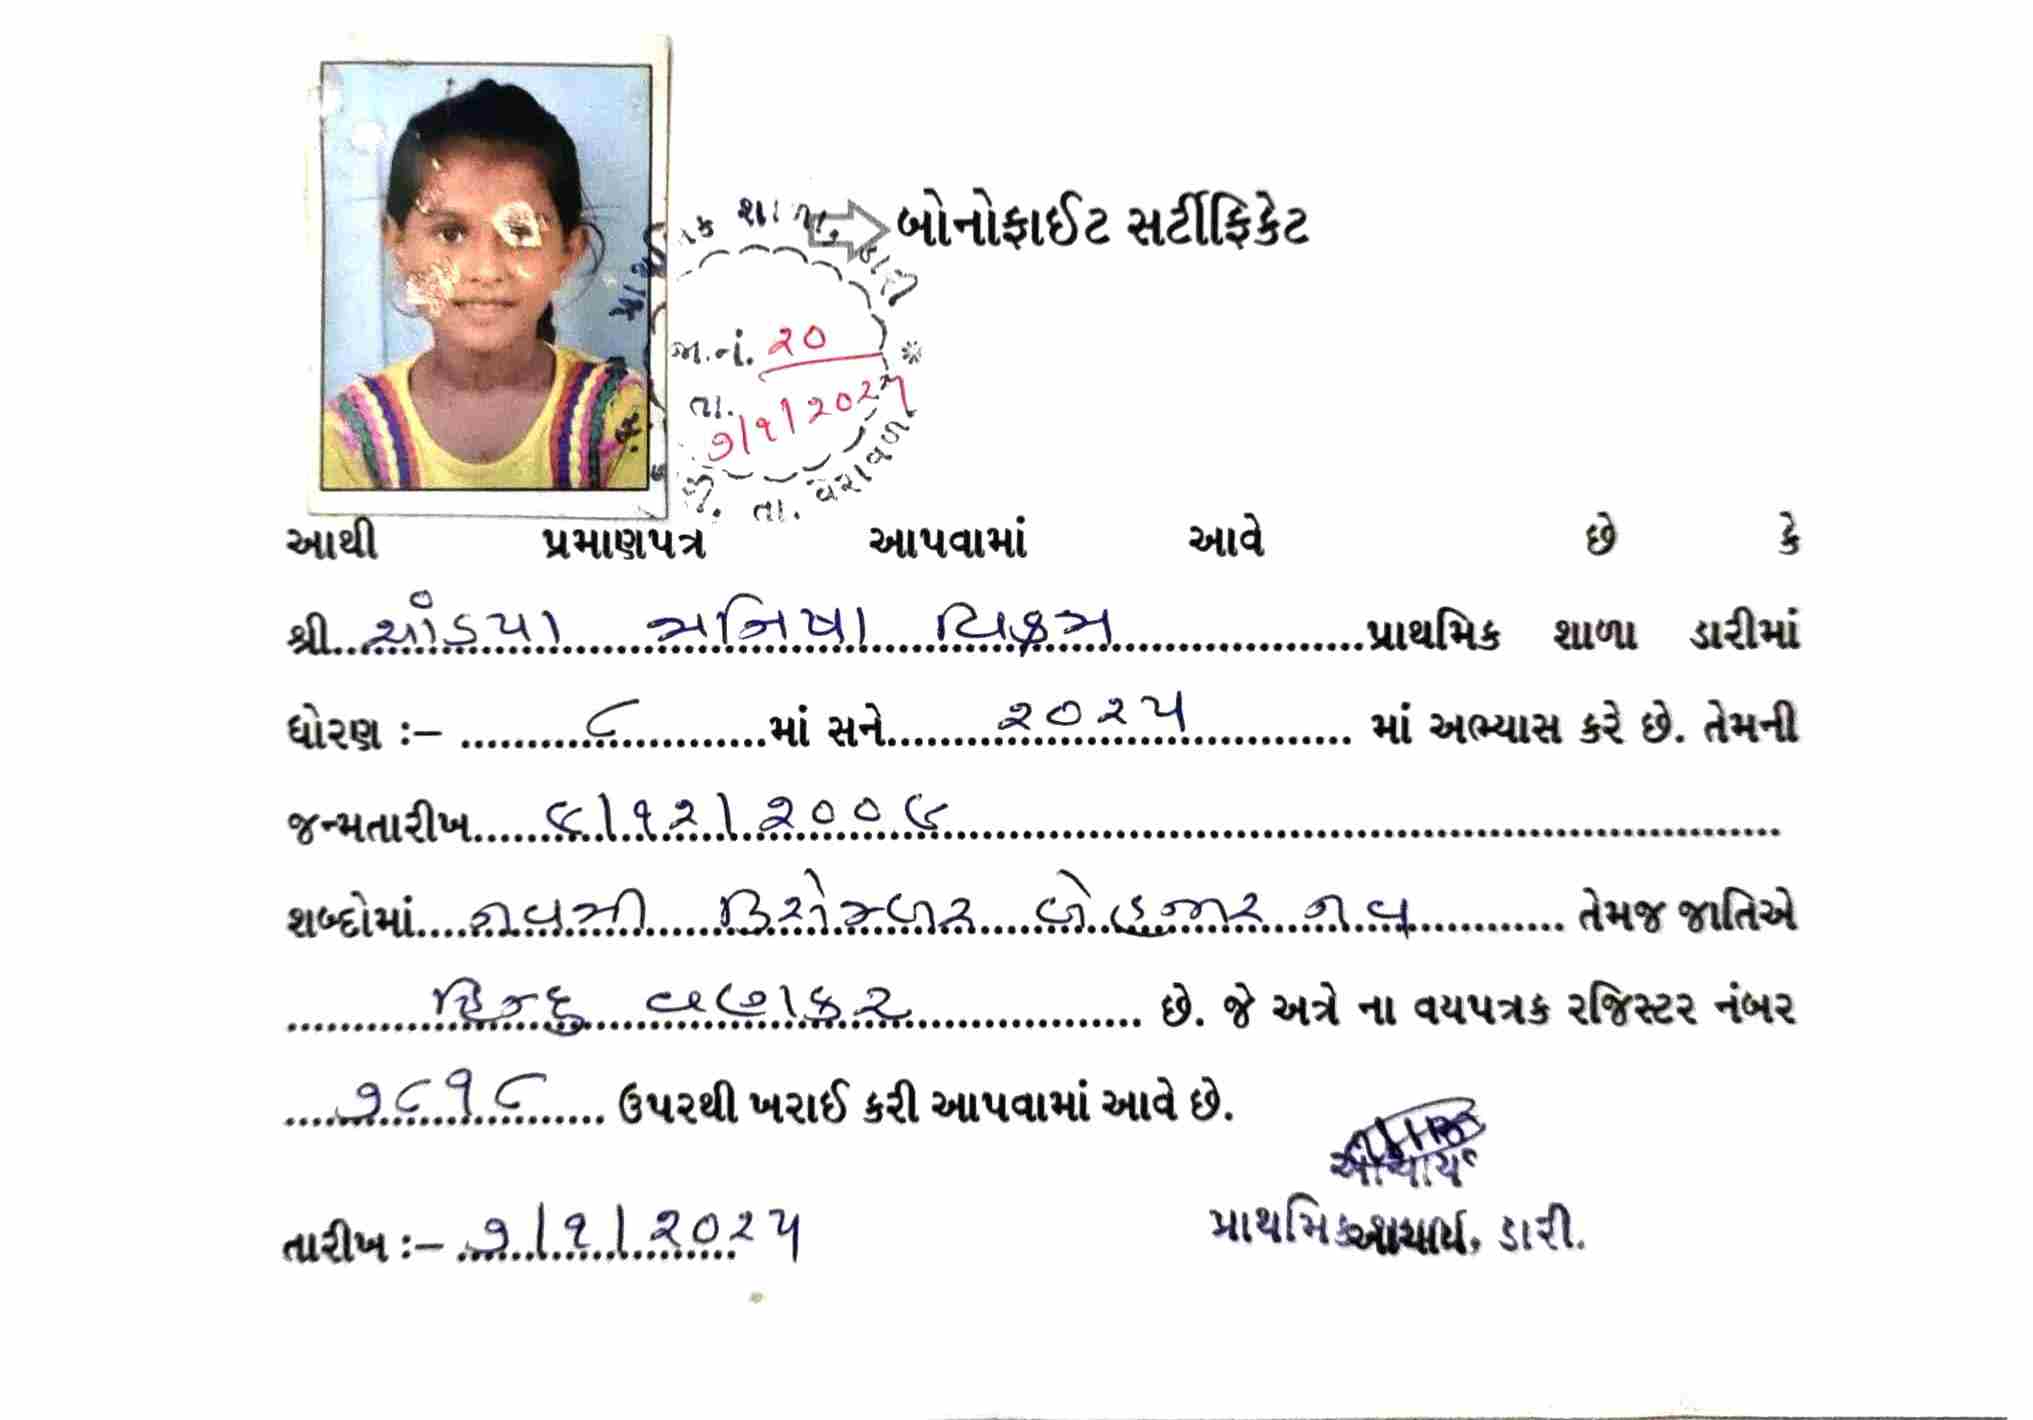 બોનોફાઈટ સર્ટીફિકેટ
જા.નં. ૨૦
તા. ૭/૧/૨૦૨૫
તા. વેરાવળ
આથી પ્રમાણપત્ર આપવામાં આવે છે કે
શ્રી ચાંડપા મનિષા વિક્રમ પ્રાથમિક શાળા ડારીમાં
ધોરણ :- ૮ માં સને ૨૦૨૫ માં અભ્યાસ કરે છે. તેમની
જન્મતારીખ ૯/૧૨/૨૦૦૯
શબ્દોમાં નવમી ડિસેમ્બર બેહજાર નવ તેમજ જાતિએ
હિન્દુ વણકર છે. જે અત્રે ના વયપત્રક રજિસ્ટર નંબર
૭૮૧૮ ઉપરથી ખરાઈ કરી આપવામાં આવે છે.
આચાર્ય
તારીખ :- ૭/૧/૨૦૨૫
પ્રાથમિક આચાર્ય, ડારી.